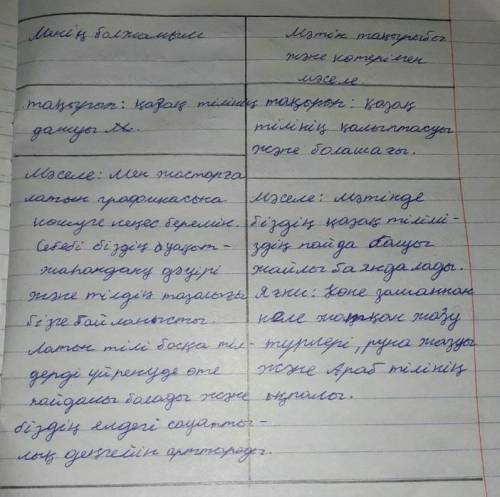 Менің болжамым
тақырып: қазақ тілінің
дамуы
Мәселе: Мен жастарға
латын графикасына
көшуге кеңес беремін.
Себебі біздің уақыт -
жаһандану дәуірі
және тілдің тазалығы
бізге байланысты.
Латын тілі басқа тіл-
дерді үйренуде өте
пайдалы болады және
біздің елдегі сауатты-
лық деңгейін арттырады.
Мәтін тақырыбы
және көтерілген
мәселе
тақырып: қазақ
тілінің қалыптасуы
және болашағы.
Мәселе: Мәтінде
біздің қазақ тіліміз-
здің пайда болуы
жайлы баяндалады.
Яғни: Көне заманнан
келе жатқан жазу
түрлері, руна жазуы
және Араб тілінің
ықпалы.